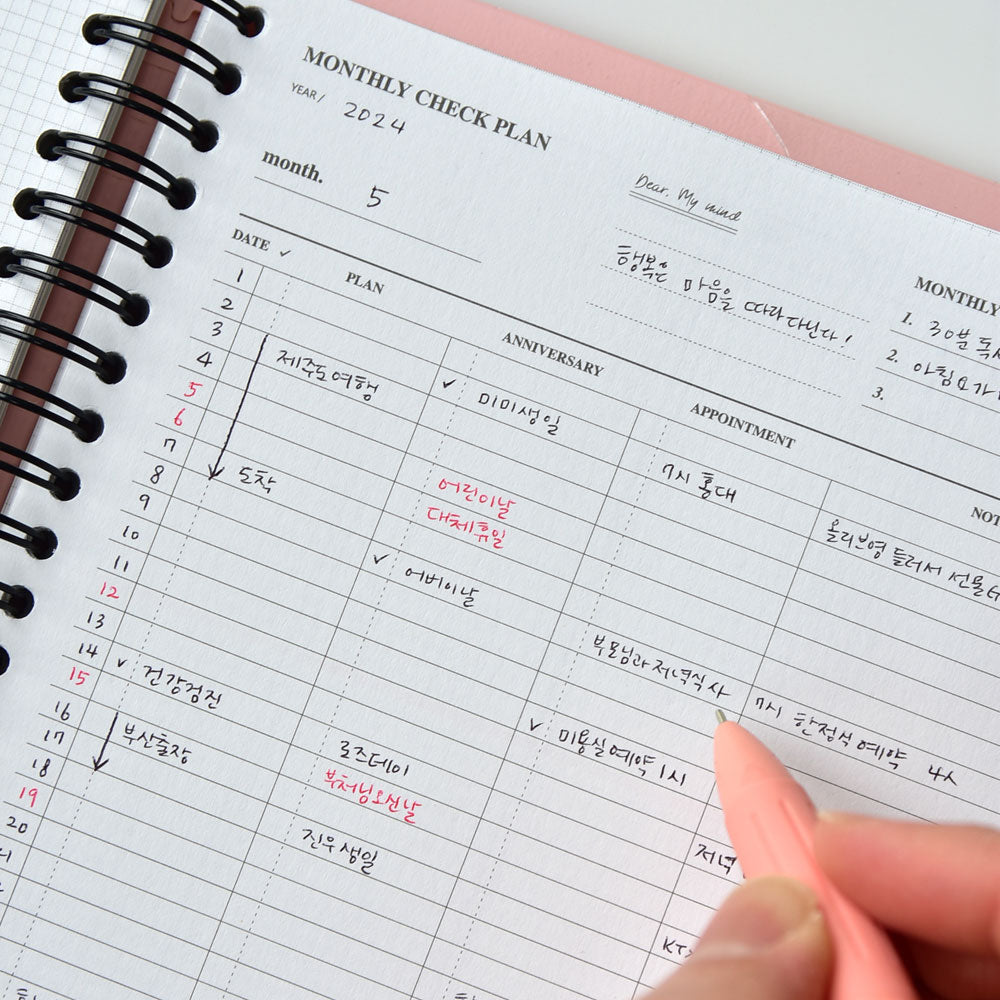 MONTHLY CHECK PLAN
YEAR/ 2024
month. 5
Dear. My mind
행복은 마음을 따라다닌다!
MONTHLY
1. 30분
2. 아침요가
3.
DATE ✓ PLAN ANNIVERSARY APPOINTMENT
1
2
3 제주도여행 ✓ 미미생일
4 7시 홍대
5 어린이날 올리브영 들러서 선물
6 대체휴일
7 도착
8 ✓ 어버이날
9
10 부모님과 저녁식사 7시 한정식 예약 4人
11
12
13 ✓ 미용실예약 1시
14 ✓ 건강검진 로즈데이
15 부산출장 부처님오신날 저녁
16
17 진우생일
18
19
20